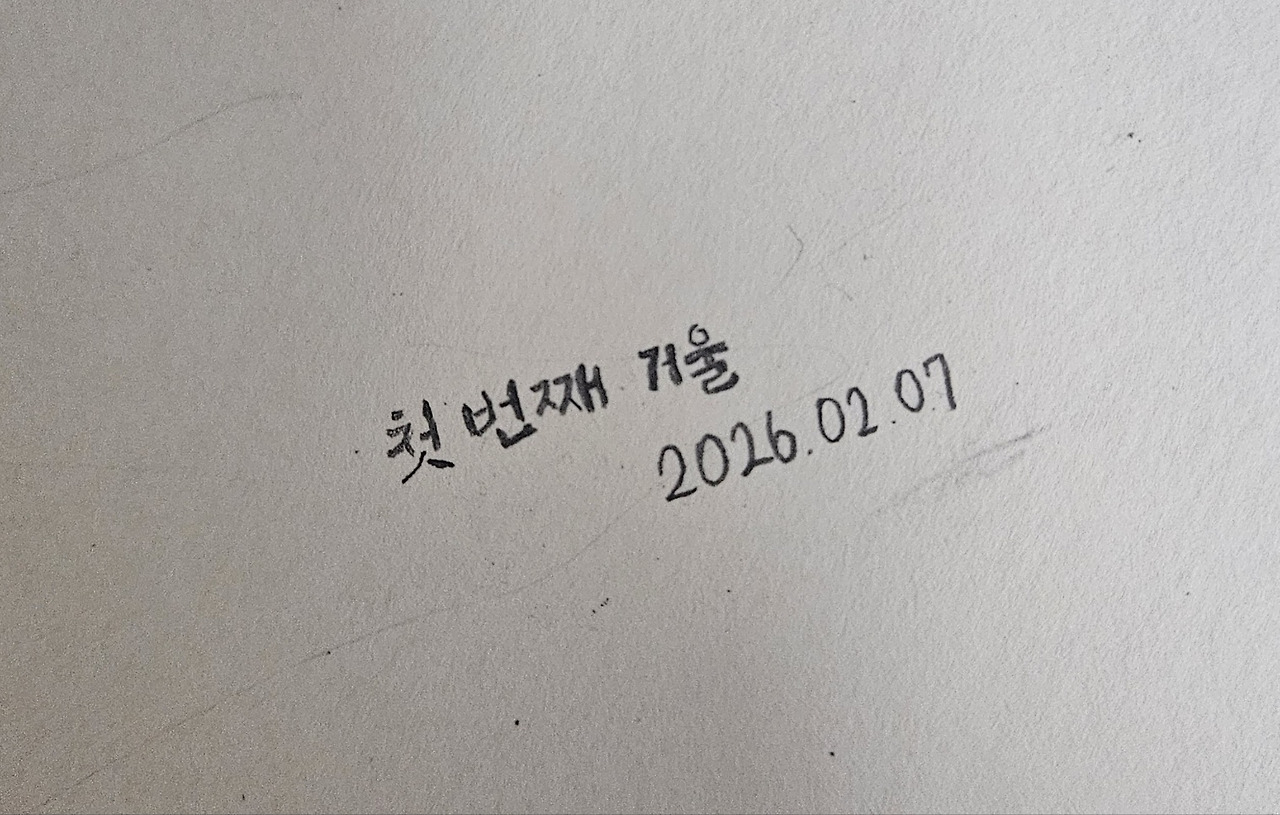 첫 번째 거울
2026.02.07